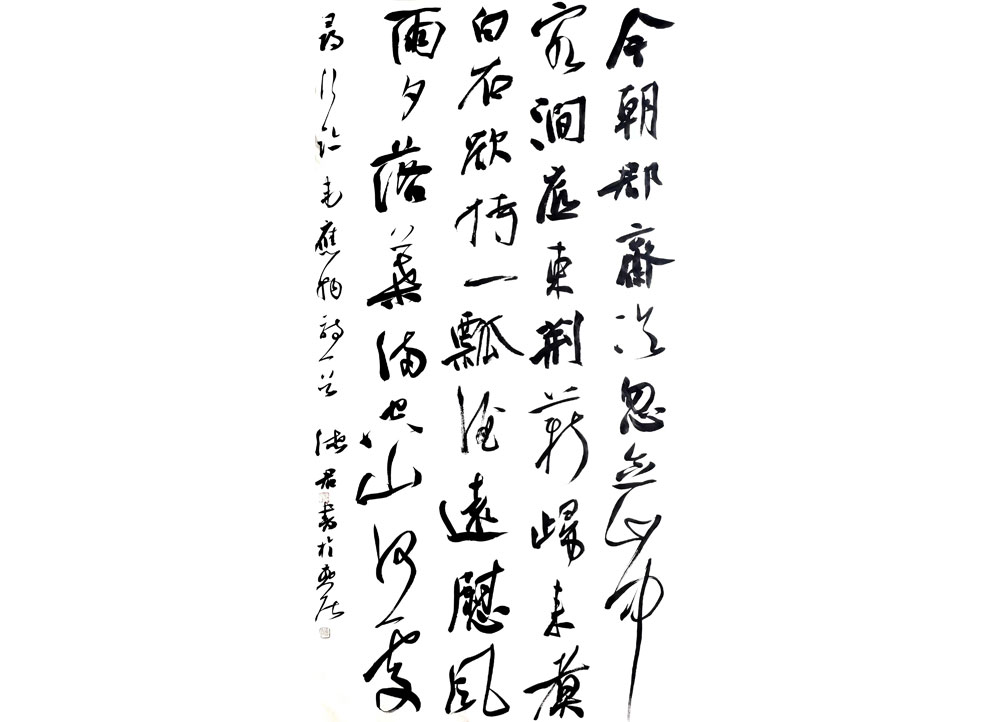 今朝郡齋冷忽念山中
客澗底束荊薪歸來煮
白石欲持一瓢酒遠慰風
雨夕落葉滿空山何處
尋行跡 韋應物詩一首 德君書於